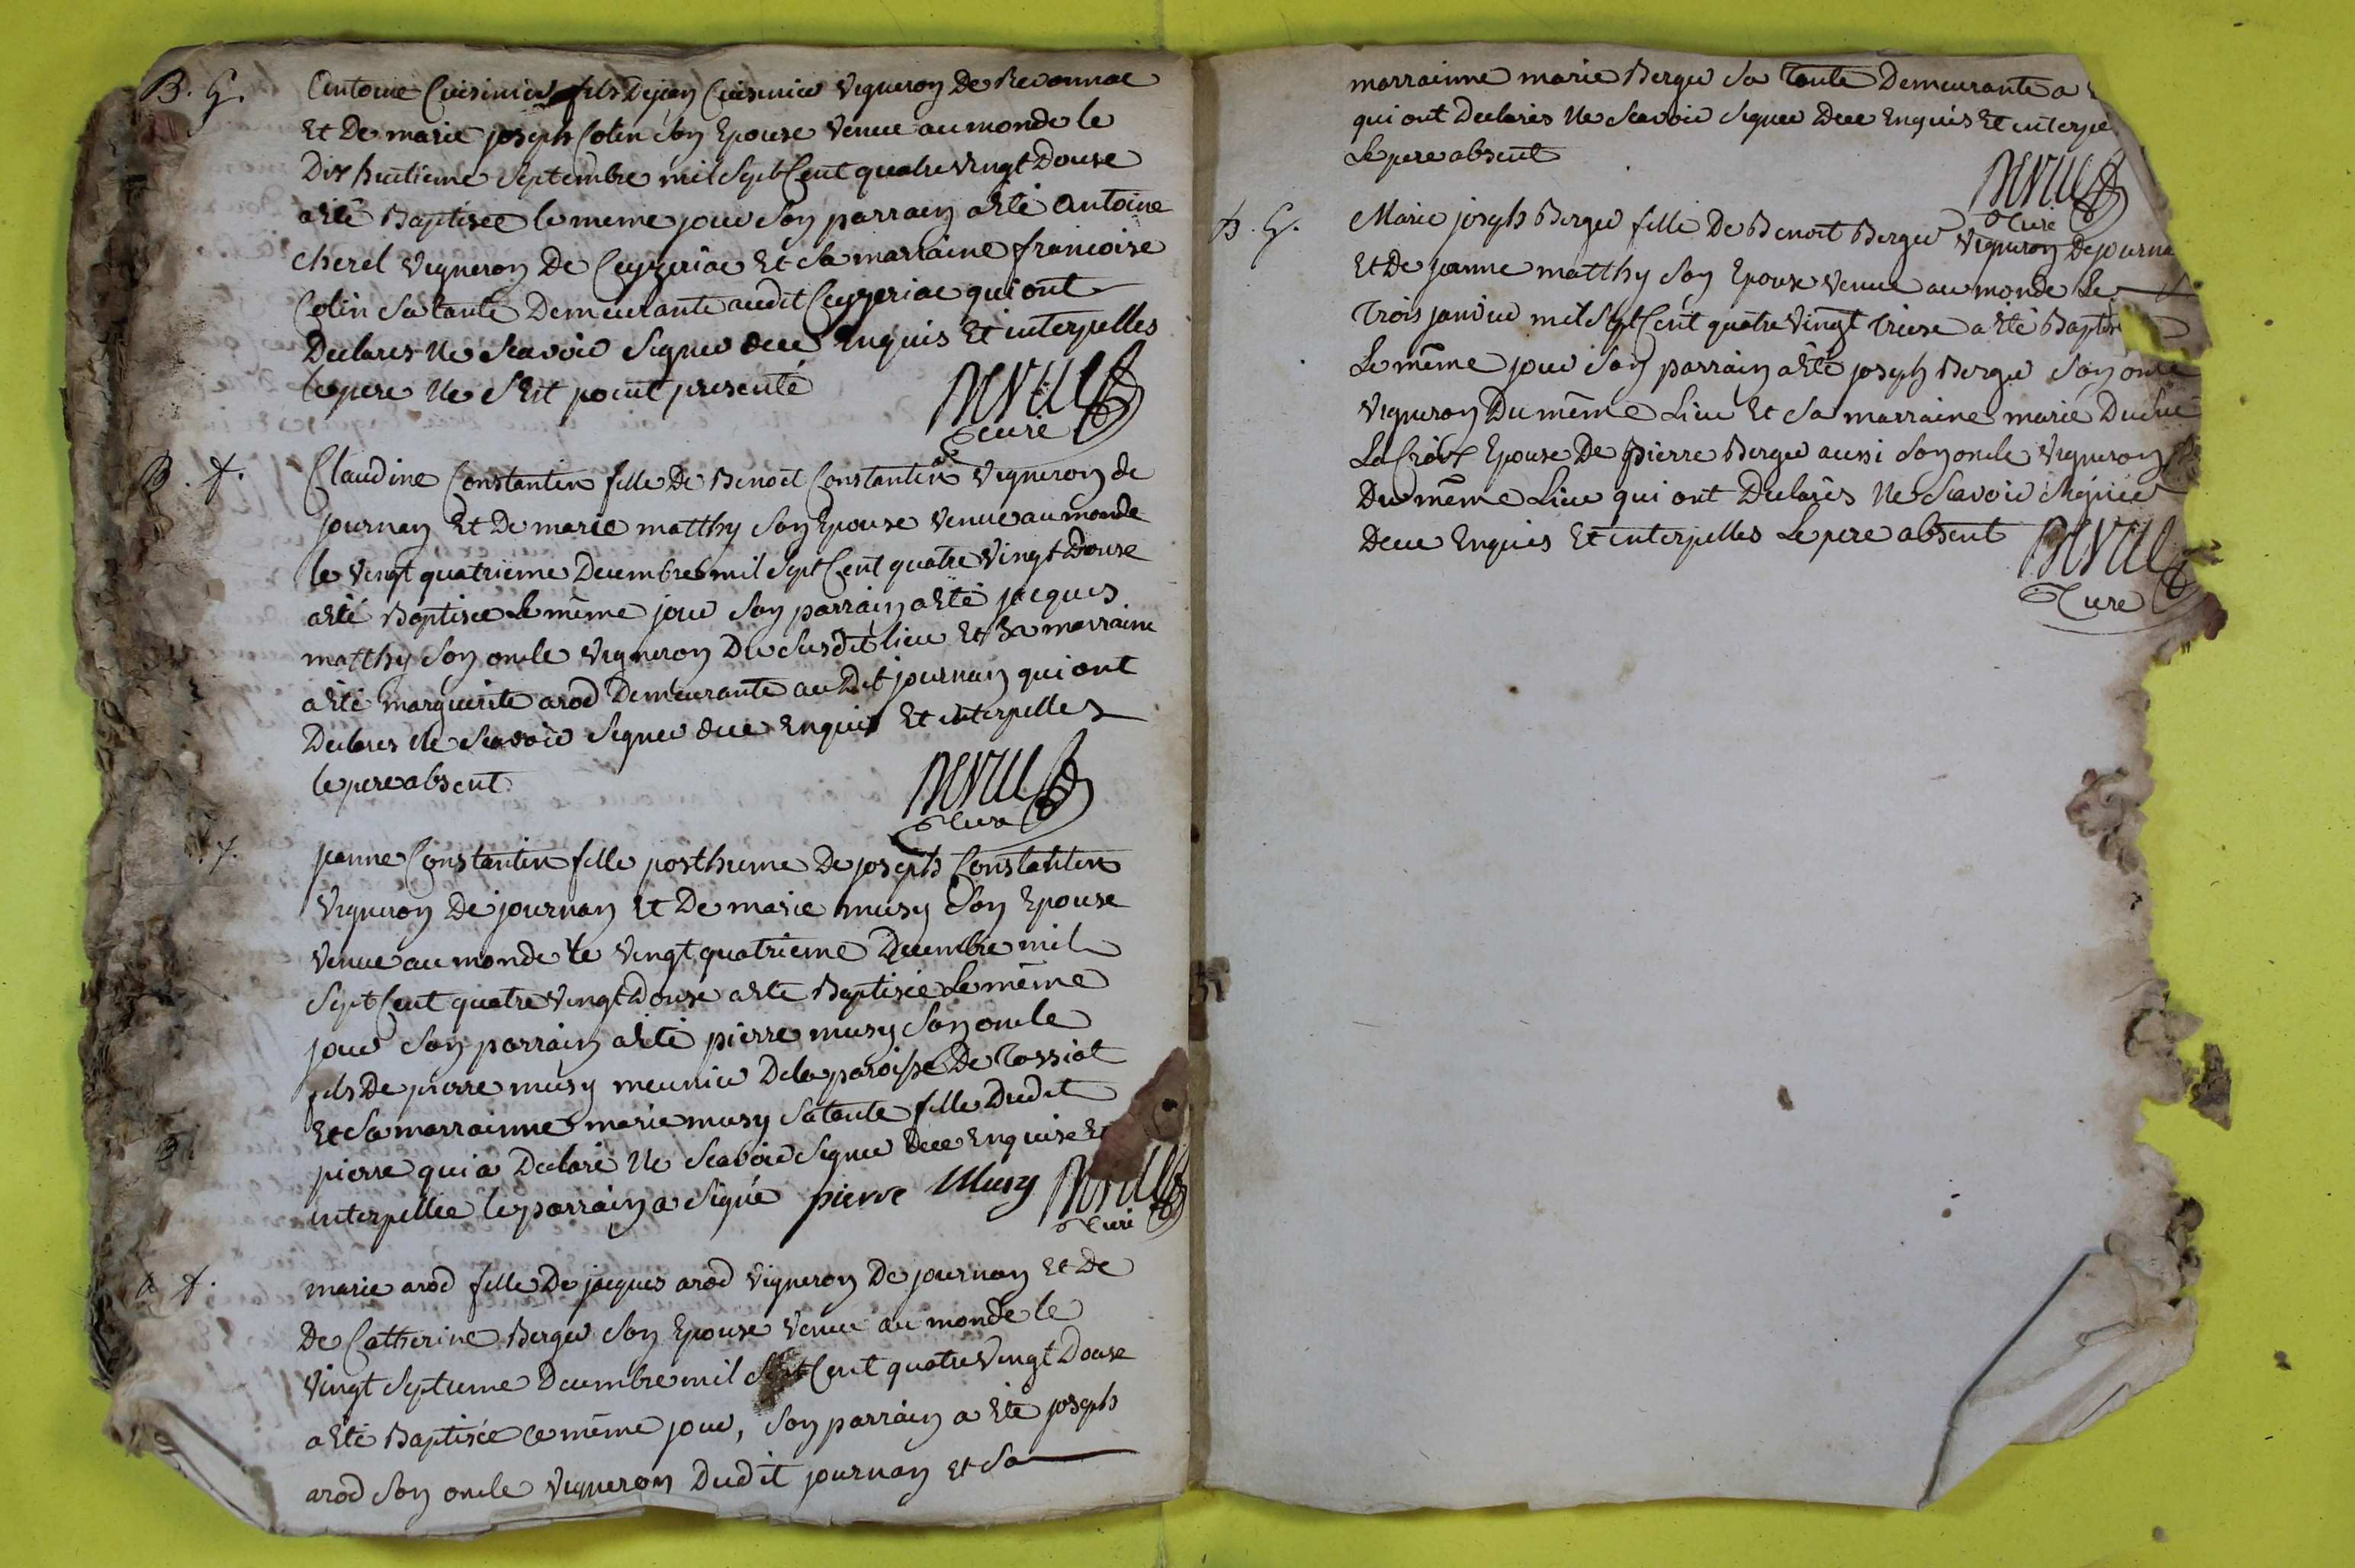 B. G.
Antoine Cuisinier fils De jean Cuisinier Vigneron De Revonnac
Et De marie joseph Colin son Epouse Venue au monde le
Dix huitieme Septembre mil Sept Cent quatre Vingt Douse
a Eté Baptisee le meme jour son parrain a Eté Antoine
cherel Vigneron De Ceyzeriac Et sa marraine francoise
Colin sa tante Demeurante audit Ceyzeriac qui ont
Declares Ne Scavoir Signer dece Enquis Et interpelles
le pere Ne s'Est point presenté
curé
B. f.
Claudine Constantin fille De Benoit Constantin Vigneron de
journan Et De marie matthy son Epouse Venue au monde
le Vingt quatrieme Decembre mil Sept Cent quatre Vingt Douse
a Eté Baptisee Le même jour son parrain a Eté jacques
matthy son oncle Vigneron Du Susdit lieu Et Sa marraine
a Eté marguerite arod Demeurante au Dit journan qui ont
Declares Ne Scavoir Signer dece Enquis Et interpelles
le pere absent
Cure
f.
jeanne Constantin fille posthume De joseph Constantin
Vigneron De journan Et De marie musy son Epouse
Venue au monde le Vingt quatrieme Decembre mil
Sept Cent quatre Vingt Douse a Eté Baptisée Le même
jour son parrain a Eté pierre musy son oncle
fils De pierre musy meunier De la paroisse De Tossiat
Et Sa marrainne marie musy sa tante fille Dudit
pierre qui a Declaré Ne Scavoir Signer Dece Enquise Et
interpellee le parrain a Signé pierre Musy
Curé
f.
marie arod fille De jacques arod Vigneron De journan Et De
De Catherine Berger son Epouse Venue au monde le
Vingt Septieme Decembre mil Sept Cent quatre Vingt Douse
a Eté Baptisée le même jour, son parrain a Eté joseph
arod son oncle Vigneron Dudit journan Et Sa
marrainne marie Berger sa tante Demeurante a
qui ont Declarés Ne Scavoir Signer Dece Enquis Et interpe
Le pere absent
Curé
B. G.
Marie joseph Berger fille De Benoit Berger Vigneron De journa
Et De jeanne matthy son Epouse Venue au monde Le
Trois janvier mil Sept Cent quatre Vingt Treise a Eté Baptis
Le même jour son parrain a Eté joseph Berger son oncle
Vigneron Du même Lieu Et sa marraine marie
La Croix Epouse De pierre Berger aussi son oncle Vigneron
Du même Lieu qui ont Declarés Ne Scavoir Signer
Dece Enquis Et interpelles Le pere absent
Cure